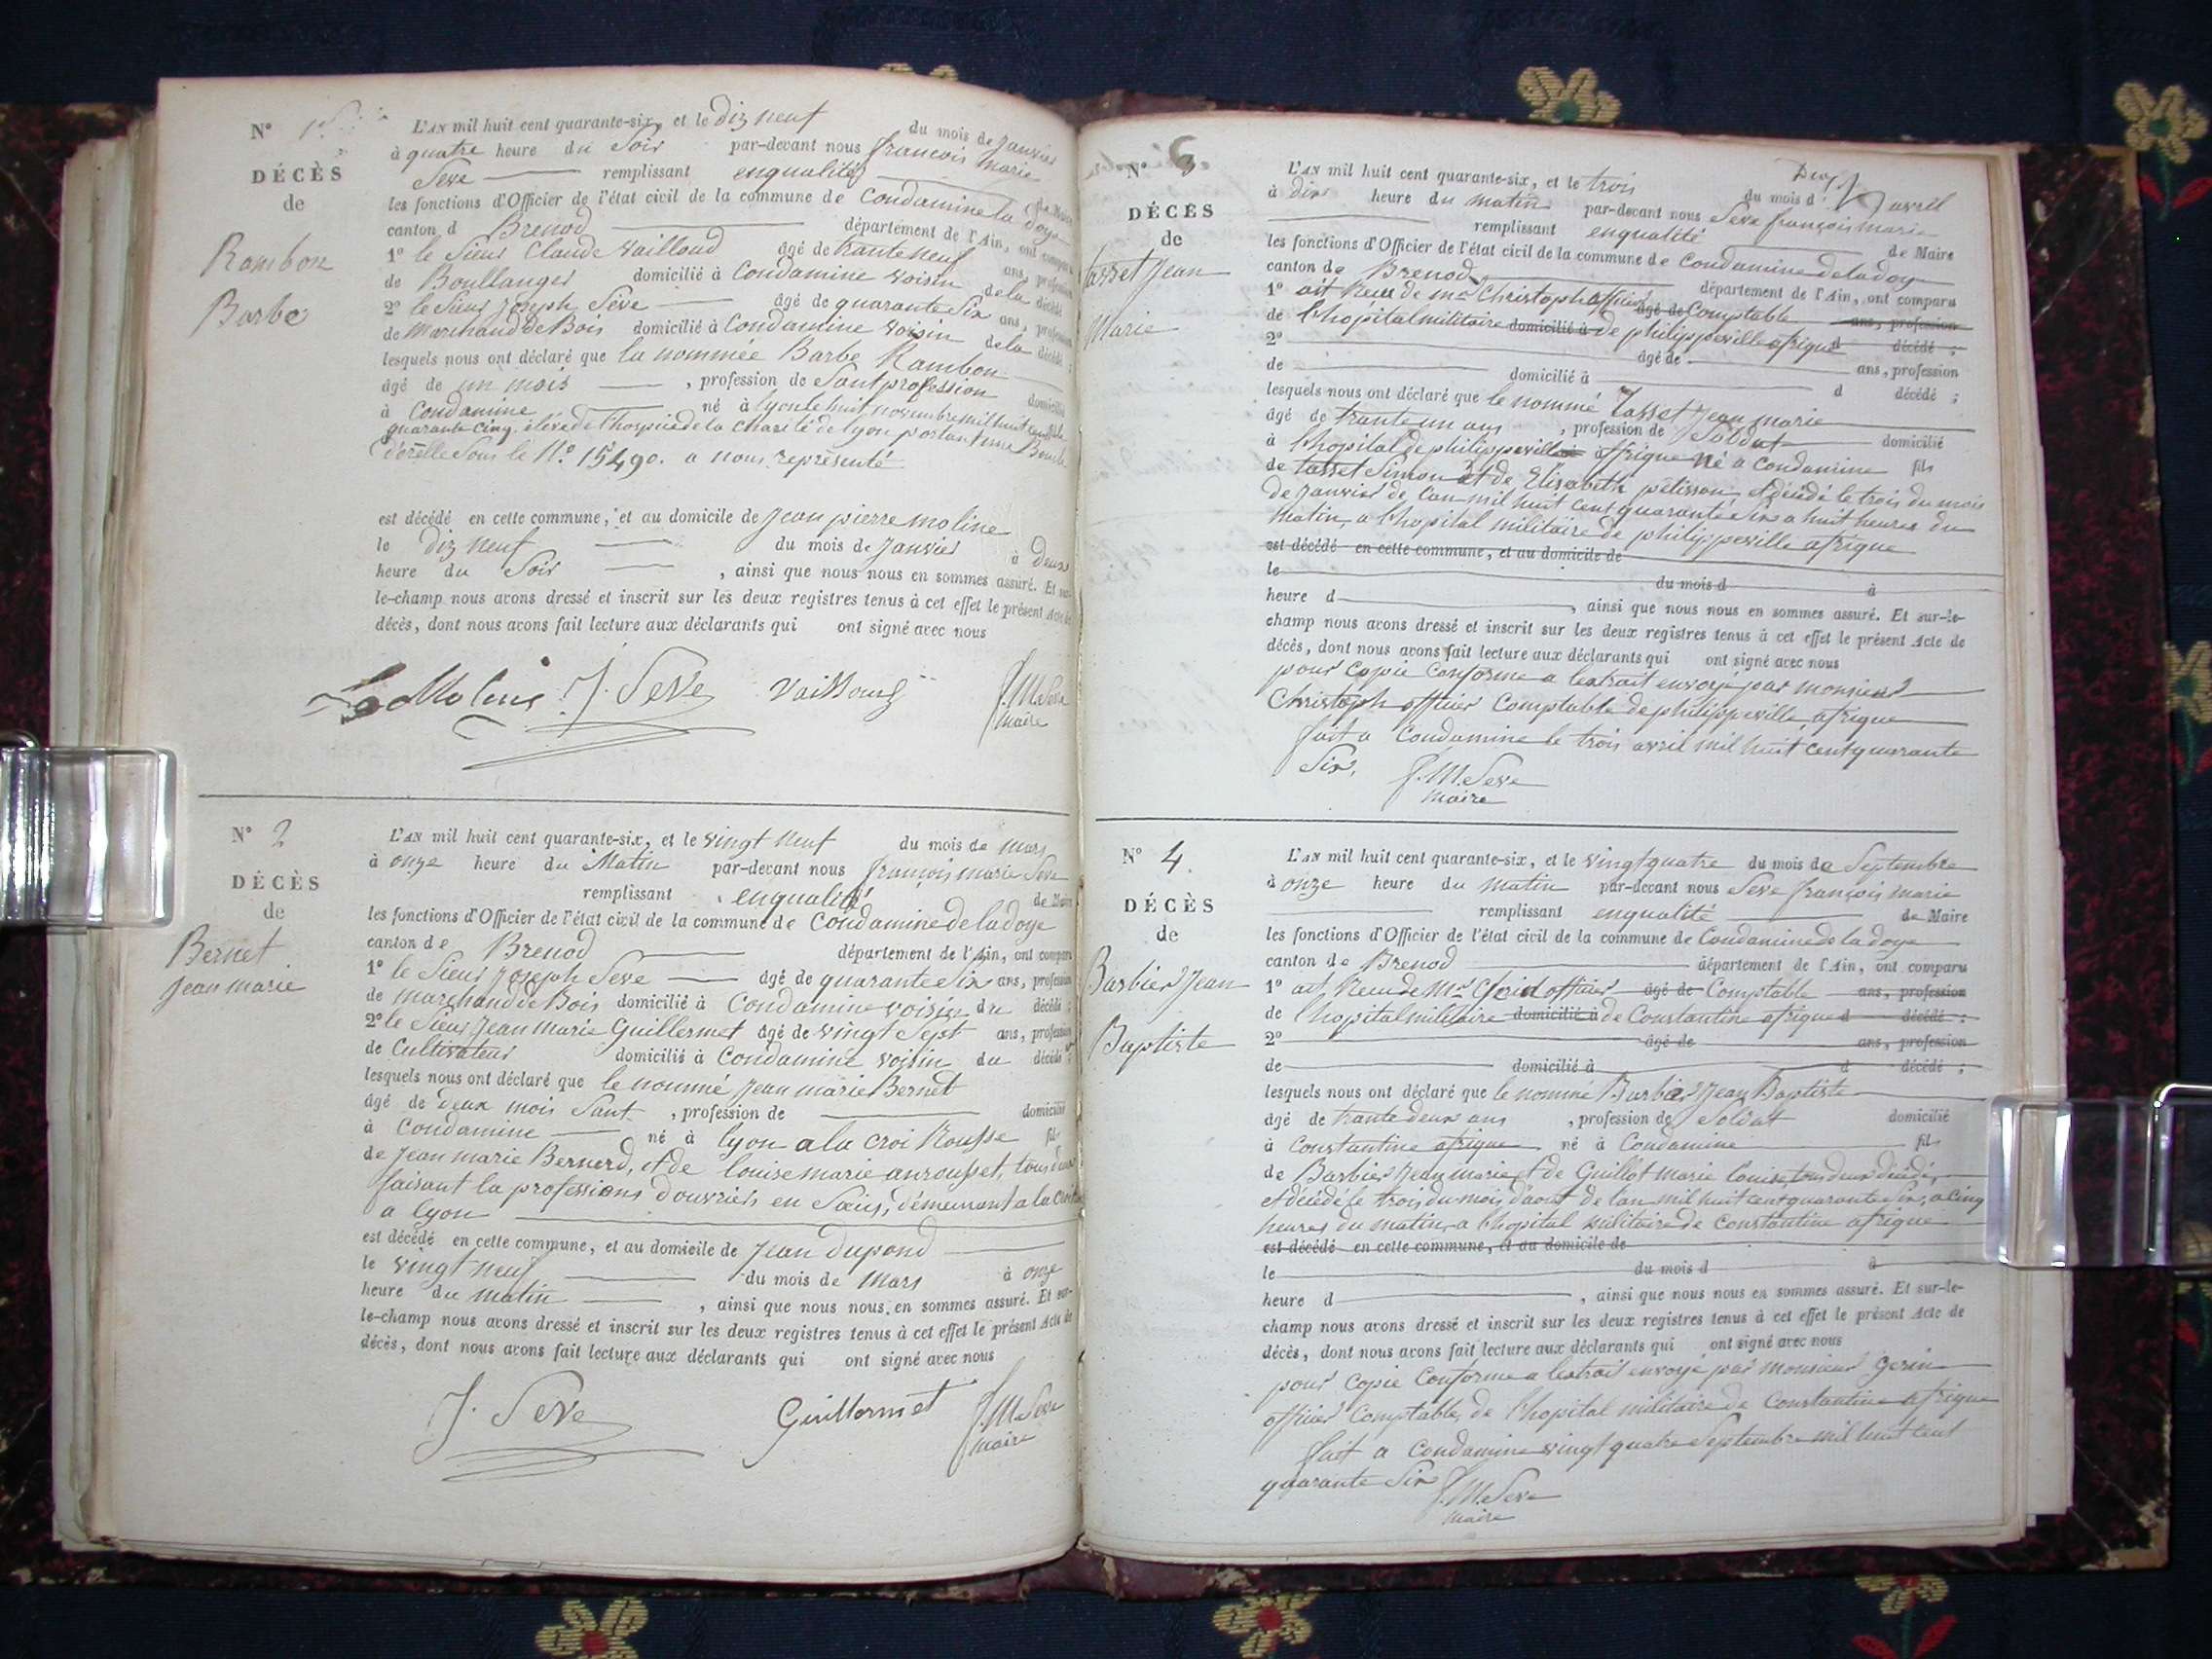 N° 1er
DÉCÈS
de
Rambon
Barbe
L'AN mil huit cent quarante-six, et le diz neuf du mois de Janvier
à quatre heure du Soir par-devant nous francois marie
Seve remplissant enqualité de Maire
les fonctions d'Officier de l'état civil de la commune de Condamine la doye
canton d Brenod département de l'Ain, ont comparu
1° le Sieur Claude Vailloud âgé de trante neuf ans, profession
de Boullanger domicilié à Condamine voisin dela décédé
2° le Sieur Joseph Seve âgé de quarante Six ans, profession
de Marchand de Bois domicilié à Condamine voisin dela décédé ;
lesquels nous ont déclaré que la nommée Barbe Rambon
âgé de un mois , profession de Sant profession domicilié
à Condamine né à lyon le huit novembre mil huit cent
quarante cinq. élève de l'hospice de la Charité de lyon portant une
d'oreille Sous le N.° 15490. a nous représenté
est décédé en cette commune, et au domicile de Jean pierre moline
le diz neuf du mois de Janvier à deux
heure du Soir , ainsi que nous nous en sommes assuré. Et sur-
le-champ nous avons dressé et inscrit sur les deux registres tenus à cet effet le présent Acte de
décès, dont nous avons fait lecture aux déclarants qui ont signé avec nous
Moline J. Seve Vailloud f. M. Seve
maire
N° 2
DÉCÈS
de
Bernet
Jean marie
L'AN mil huit cent quarante-six, et le vingt neuf du mois de mars
à onze heure du Matin par-devant nous françois marie Seve
remplissant enqualité de Maire
les fonctions d'Officier de l'état civil de la commune de Condamine de la doye
canton de Brenod département de l'Ain, ont comparu
1° le Sieur Joseph Seve âgé de quarante Six ans, profession
de marchand de Bois domicilié à Condamine voisin du décédé ;
2° le Sieur Jean Marie Guillermet âgé de vingt Sept ans, profession
de Cultivateur domicilié à Condamine voisin du décédé ;
lesquels nous ont déclaré que le nommé Jean marie Bernet
âgé de deux mois Sant , profession de domicilié
à Condamine né à lyon a la croi Rousse fils
de Jean marie Bernerd, et de louise marie anrousset, tous deux
faisant la professions d'ouvriers en Soeies, démeurant a la Croi
a lyon
est décédé en cette commune, et au domicile de Jean Dupond
le vingt neuf du mois de mars à onze
heure du matin , ainsi que nous nous en sommes assuré. Et sur-
le-champ nous avons dressé et inscrit sur les deux registres tenus à cet effet le présent Acte de
décès, dont nous avons fait lecture aux déclarants qui ont signé avec nous
J. Seve Guillermet f. M. Seve
maire
N° 3
DÉCÈS
de
Tasset Jean
Marie
L'AN mil huit cent quarante-six, et le trois du mois d' avril
à dix heure du matin par-devant nous Seve françois marie
remplissant enqualité de Maire
les fonctions d'Officier de l'état civil de la commune de Condamine de la doye
canton de Brenod département de l'Ain, ont comparu
1° ait Recu de mr Christoph officier âgé de Comptable ans, profession
de l'hopital militaire domicilié à de philippeville afrique d décédé ;
2° âgé de ans, profession
de domicilié à d décédé ;
lesquels nous ont déclaré que le nommé Tasset Jean marie
âgé de trante un ans , profession de Soldat domicilié
à l'hopital de philippeville affrique Né a Condamine fils
de tasset Simon et de Elisabeth pétisson, et décédé le trois du mois
de Janvier de l'an mil huit cent quarante Six a huit heures du
matin, a l'hopital militaire de philippeville afrique
est décédé en cette commune, et au domicile de
le du mois d à
heure d , ainsi que nous nous en sommes assuré. Et sur-le-
champ nous avons dressé et inscrit sur les deux registres tenus à cet effet le présent Acte de
décès, dont nous avons fait lecture aux déclarants qui ont signé avec nous
pour Copie Conforme a lextrait envoyé par monsieur
Christoph officier Comptable de philippeville, afrique
fait a Condamine le trois avril mil huit cent quarante
Six, f. M. Seve
maire
N° 4
DÉCÈS
de
Barbier Jean
Baptiste
L'AN mil huit cent quarante-six, et le vingt quatre du mois de Septembre
à onze heure du matin par-devant nous Seve françois marie
remplissant enqualité de Maire
les fonctions d'Officier de l'état civil de la commune de Condamine de la doye
canton de Brenod département de l'Ain, ont comparu
1° ait Recu de Mr officier âgé de Comptable ans, profession
de l'hopital militaire domicilié à de Constantine afrique d décédé ;
2° âgé de ans, profession
de domicilié à d décédé ;
lesquels nous ont déclaré que le nommé Barbier Jean Baptiste
âgé de trante deux ans , profession de Soldat domicilié
à Constantine afrique né à Condamine fils
de Barbier Jean marie, et de Guillot Marie louise, tou deux décédé,
et décédé le trois du mois d'aout de l'an mil huit cent quarante Six, a Cinq
heures du matin, a l'hopital militaire de Constantine afrique
est décédé en cette commune, et au domicile de
le du mois d à
heure d , ainsi que nous nous en sommes assuré. Et sur-le-
champ nous avons dressé et inscrit sur les deux registres tenus à cet effet le présent Acte de
décès, dont nous avons fait lecture aux déclarants qui ont signé avec nous
pour Copie Conforme a lextrait envoyé par monsieur gerin
officier Comptable, de l'hopital militaire de Constantine afrique
fait a Condamine vingt quatre Septembre mil huit cent
quarante Six f. M. Seve
maire